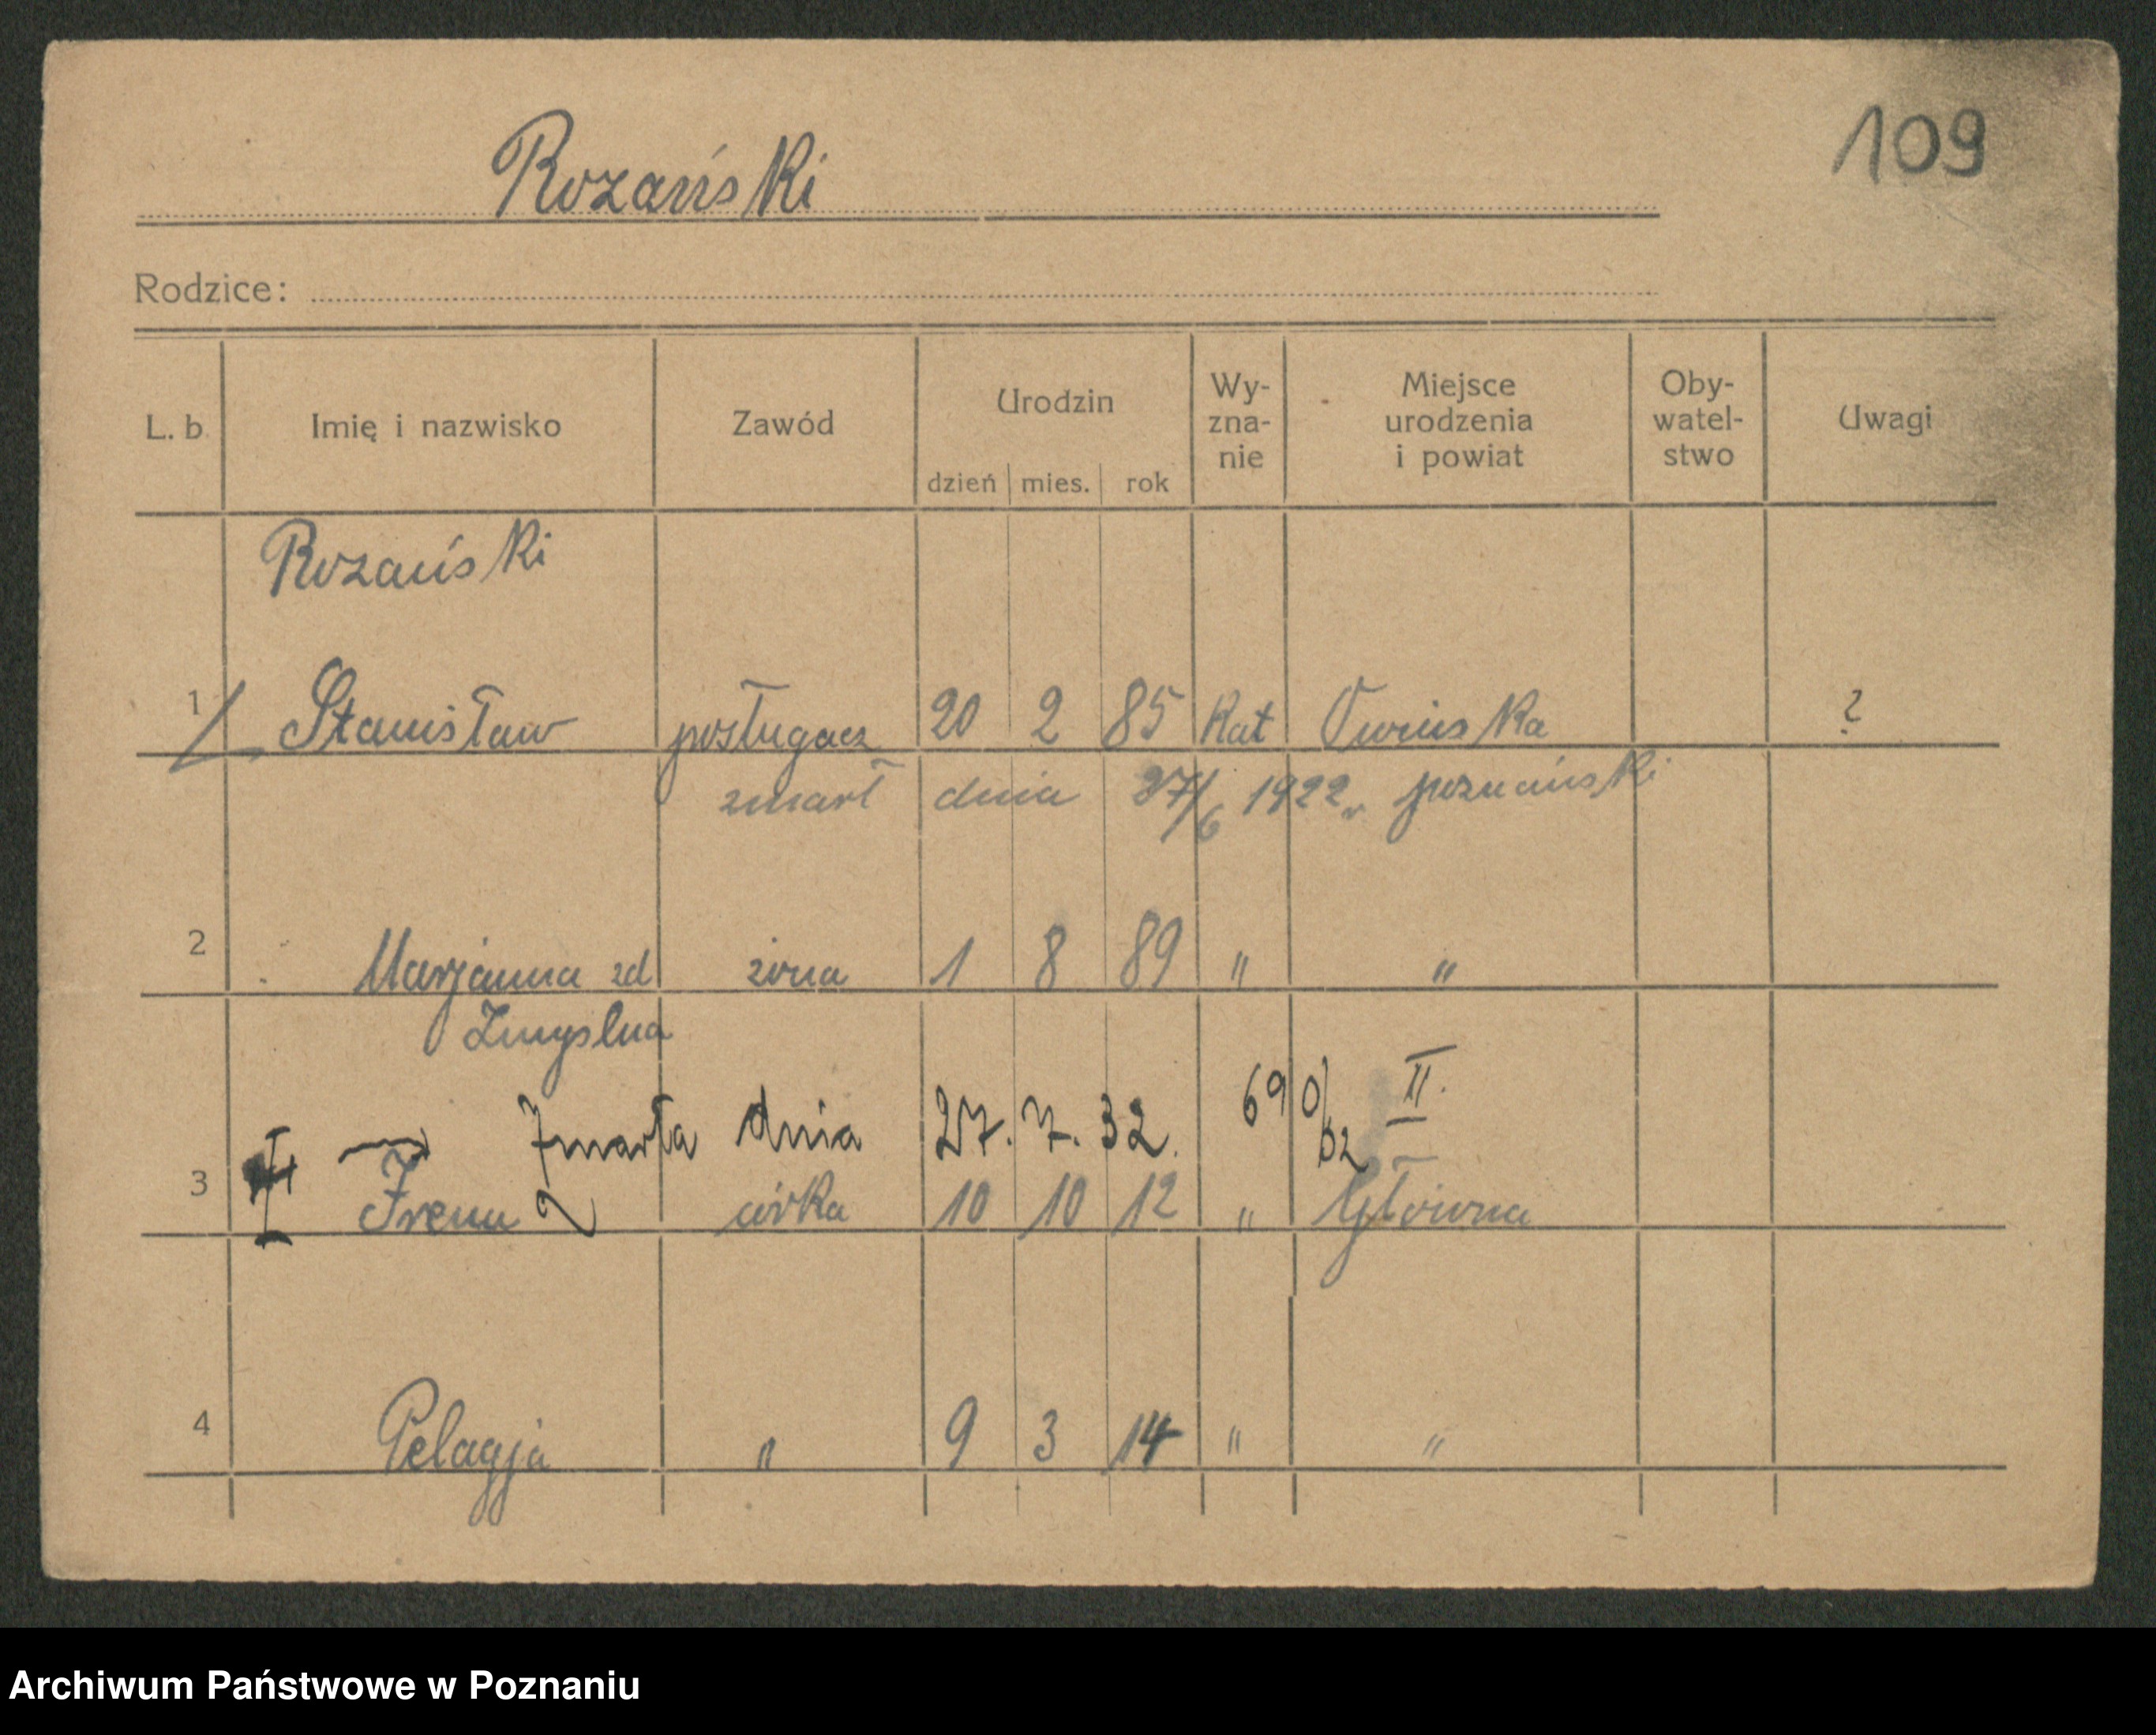 109
Rozański
Rodzice:
L. b. Imię i nazwisko Zawód Urodzin dzień mies. rok Wy-zna-nie Miejsce urodzenia i powiat Oby-watel-stwo Uwagi
Rozański
1 Stanisław posługacz 20 2 85 Kat Owińska ?
zmarł dnia 27/6 1922 r poznański
2 Marjanna zd żona 1 8 89 " "
Zmyslna
Zmarła dnia 27. 7. 32. 690/32 II.
3 Irena córka 10 10 12 " Główna
4 Pelagja " 9 3 14 " "
Archiwum Państwowe w Poznaniu